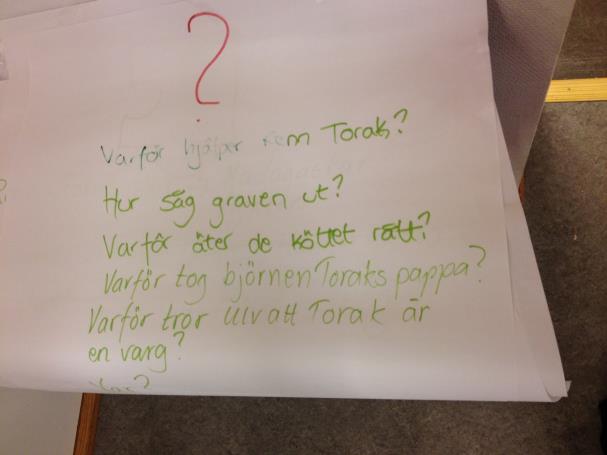 ?
Varför hjälper Renn Torak?
Hur såg graven ut?
Varför äter de köttet rått?
Varför tog björnen Toraks pappa?
Varför tror Ulv att Torak är
en varg?